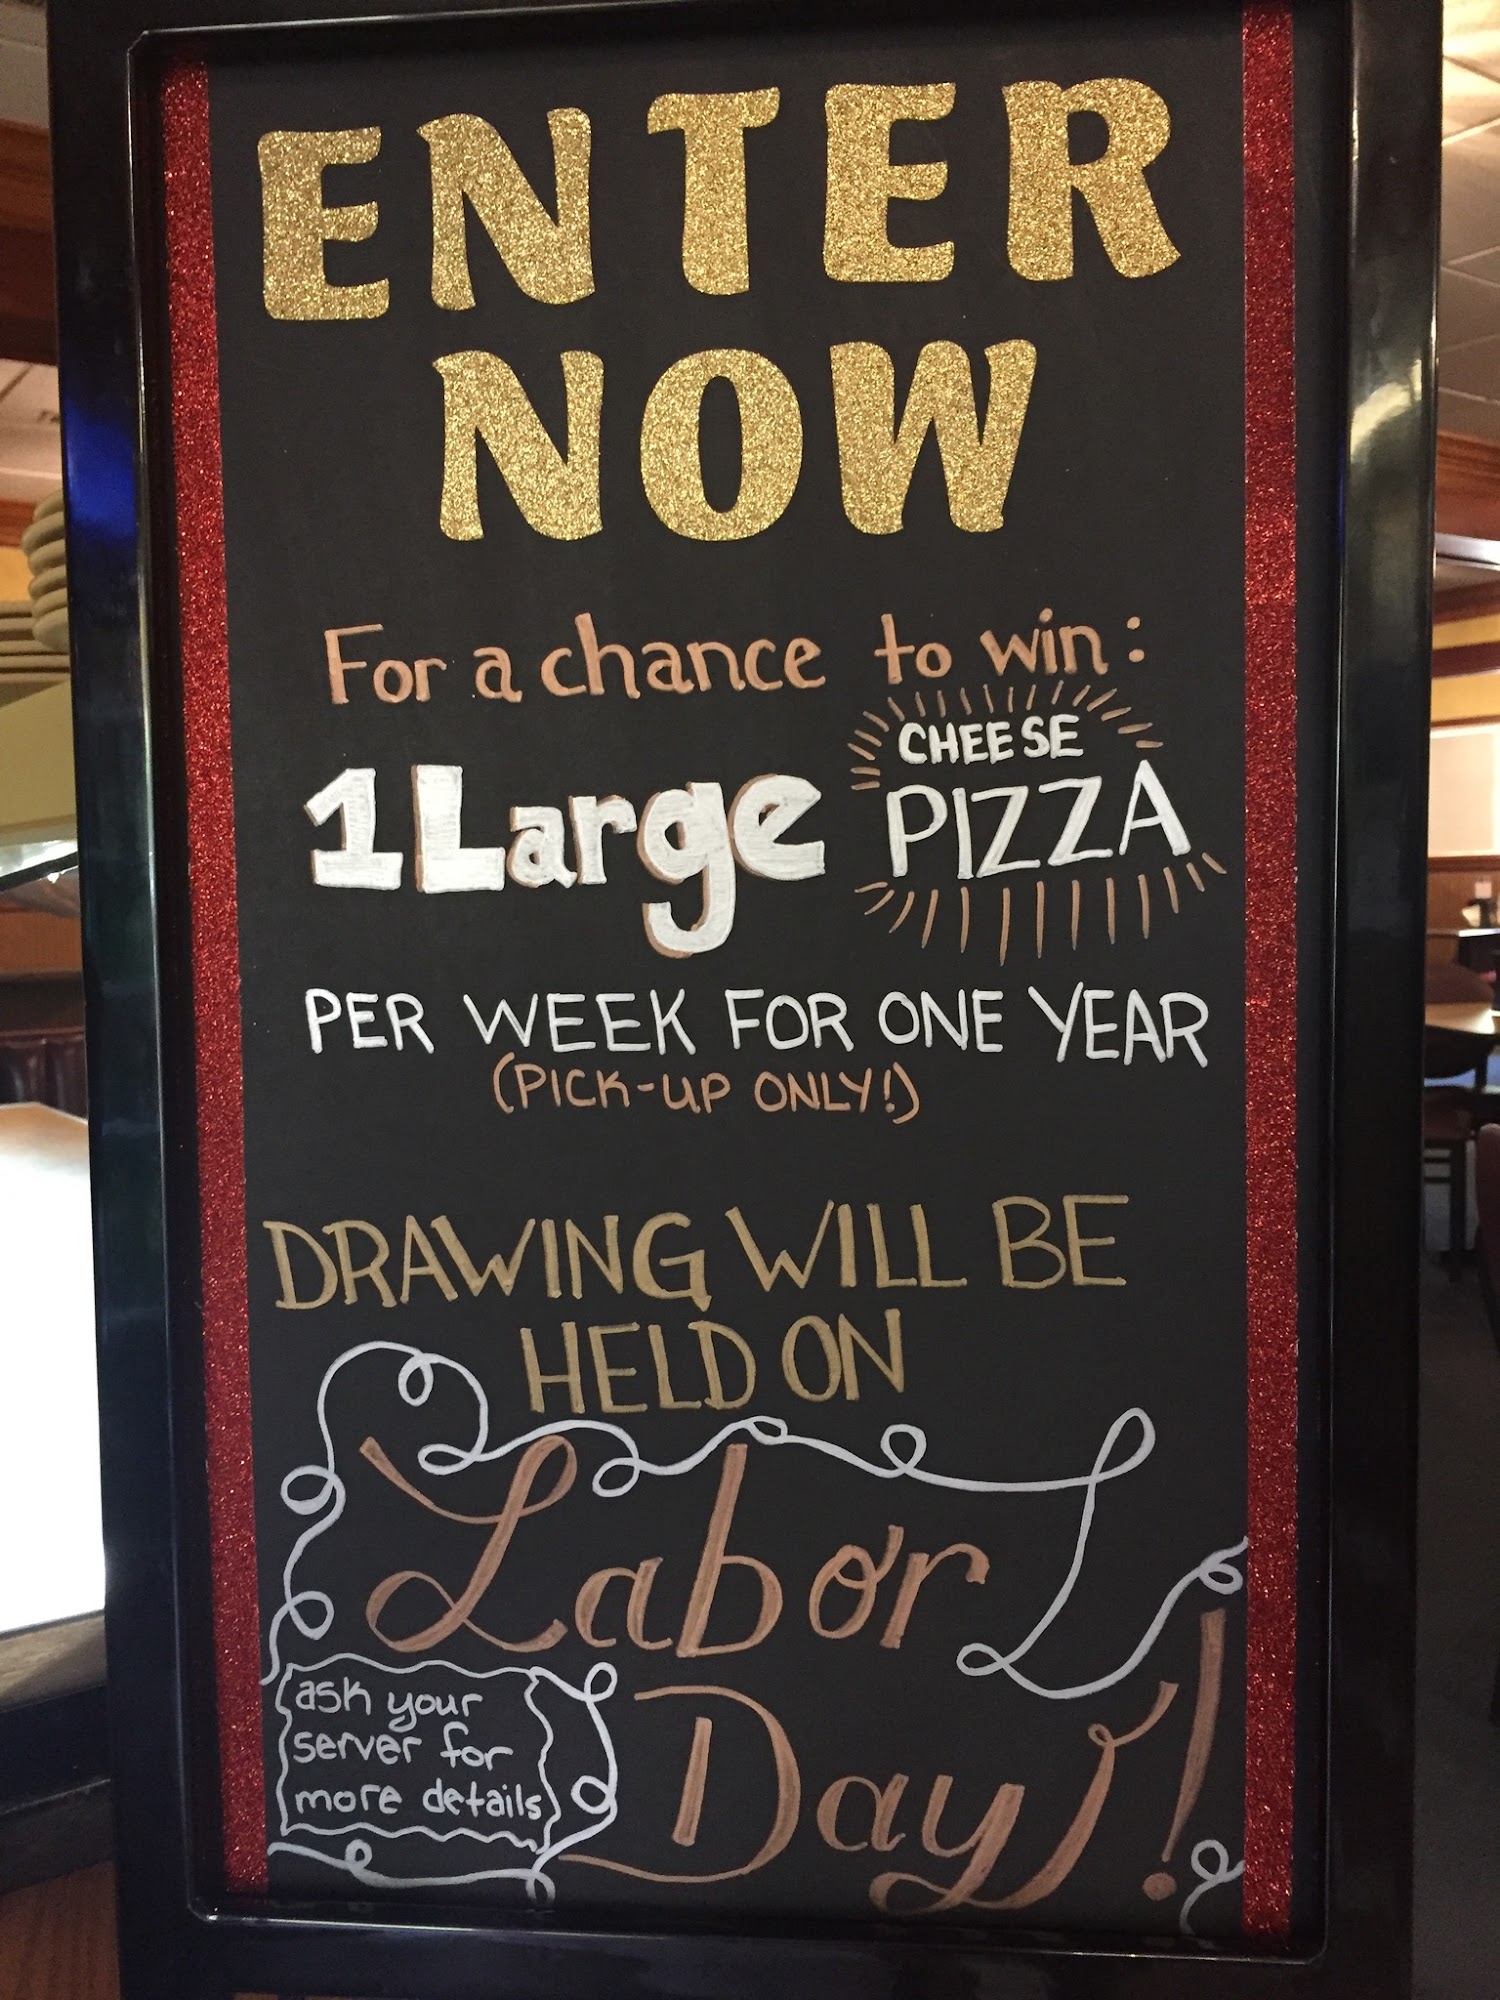 ENTER
NOW
For a chance to win:
1 Large CHEESE PIZZA
PER WEEK FOR ONE YEAR
(PICK-UP ONLY!)
DRAWING WILL BE
HELD ON
Labor
Day!
ask your
server for
more details